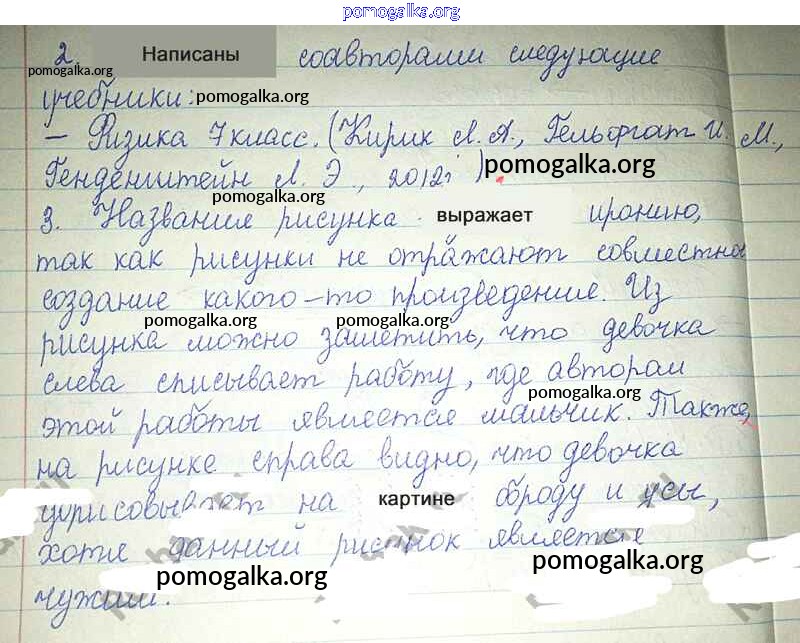 pomogalka.org
2. Написаны соавторами следующие
pomogalka.org
учебники: pomogalka.org
– Физика 7 класс. (Кирик Л. А., Гельфгат И. М.,
Генденштейн Л. Э., 2012г) pomogalka.org
pomogalka.org
3. Название рисунка выражает иронию,
так как рисунки не отражают совместно
создание какого-то произведения. Из
pomogalka.org pomogalka.org
рисунка можно заметить, что девочка
слева списывает работу, где автором
pomogalka.org
этой работы является мальчик. Также,
на рисунке справа видно, что девочка
дорисовывает на картине броду и усы,
хотя данный рисунок является
pomogalka.org pomogalka.org
чужим.